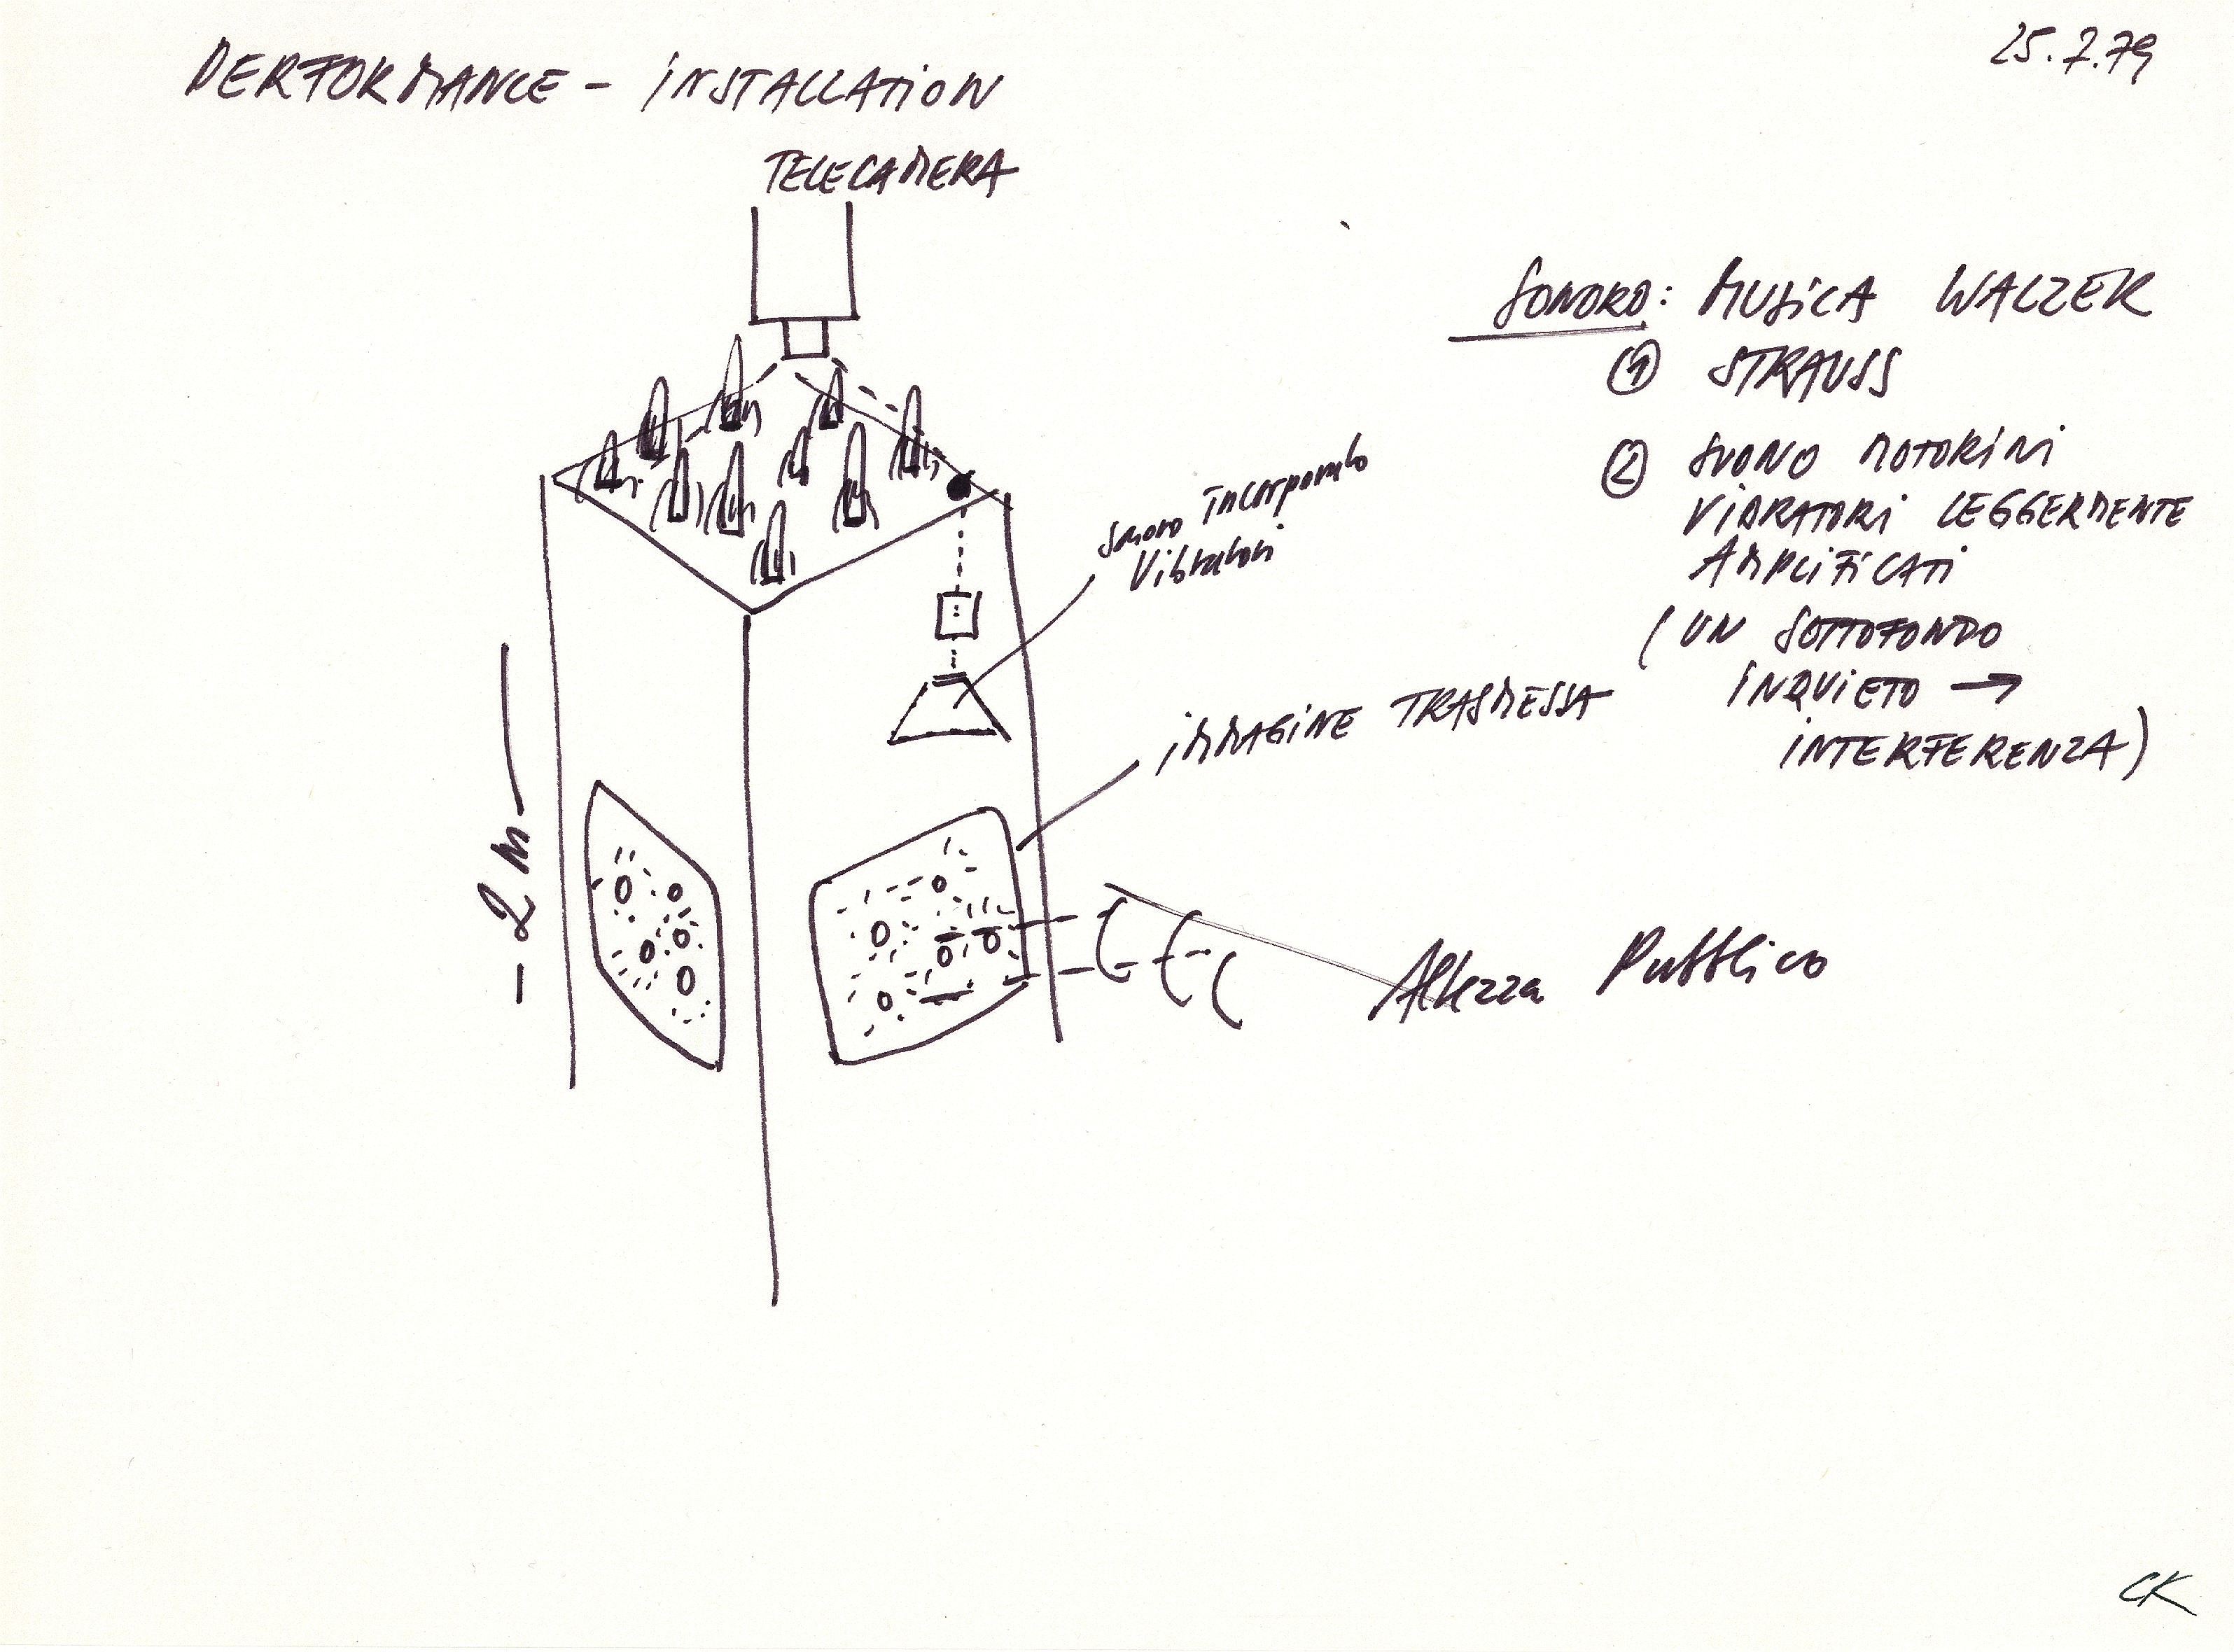 PERFORMANCE - INSTALLATION
25.7.79
TELECAMERA
SONORO: MUSICA WALZER
① STRAUSS
② SUONO MOTORINI
VIBRATORI LEGGERMENTE
AMPLIFICATI
(UN SOTTOFONDO
INQUIETO →
INTERFERENZA)
Sonoro incorporato
Vibratori
IMMAGINE TRASMESSA
- 2 m -
Altezza Pubblico
CK